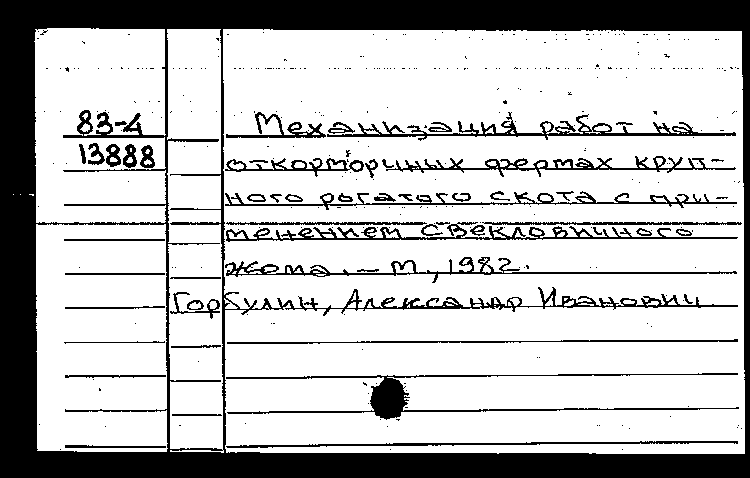 83-4 Механизация работ на
13888 откормочных фермах круп-
ного рогатого скота с при-
менением свекловичного
жома. — М., 1982.
Горбулин, Александр Иванович